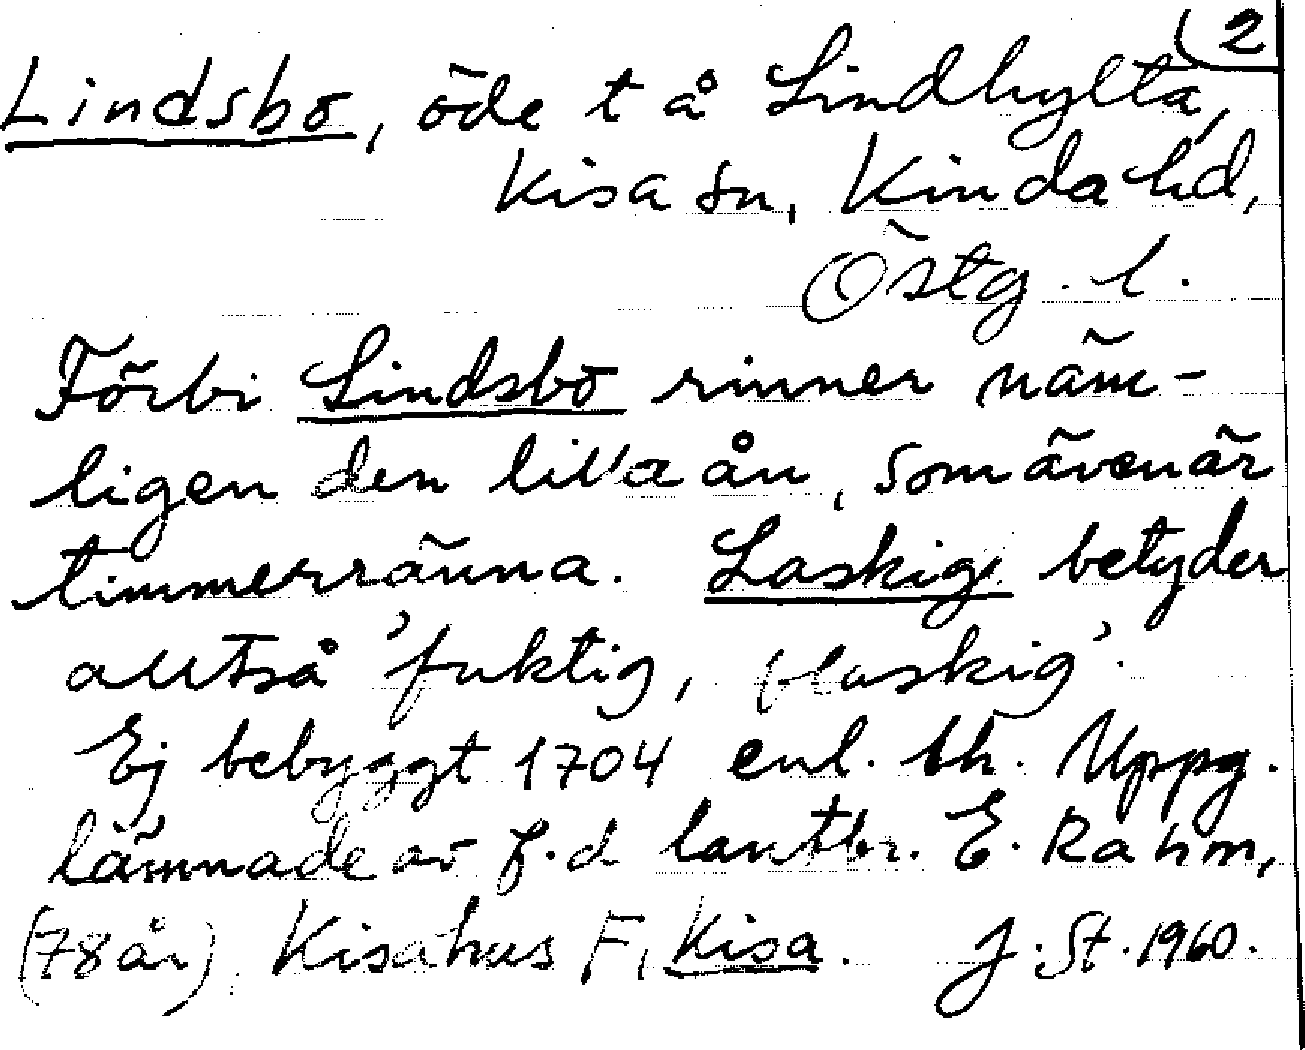 2
Lindsbo, öde t å Lindhylta,
Kisa sn, Kinda hd,
Östg. l.
Förbi Lindsbo rinner näm-
ligen den lilla ån, som även är
timmerränna. Laskig betyder
alltså 'fuktig, plaskig'.
Ej bebyggt 1704 enl. th. Uppg.
lämnade av f.d lantbr. E. Rahm,
(78 år), Kisahus F, Kisa. J. St. 1960.